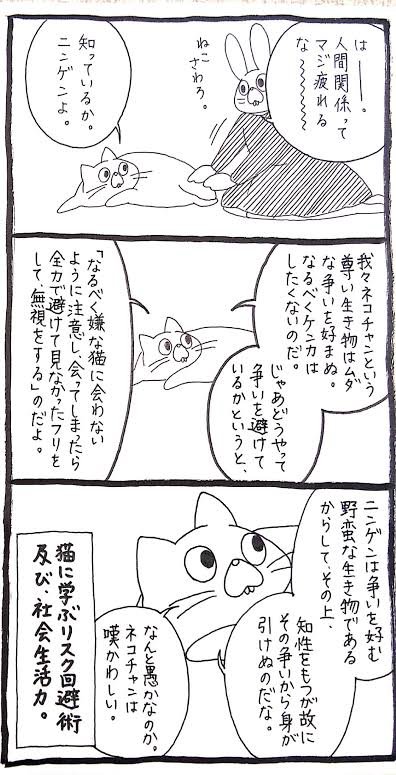 はーー。
人間関係って
マジ疲れる
な〜〜〜〜
ねこ
さわろ。
知っているか。
ニンゲンよ。
我々ネコチャンという
尊い生き物はムダ
な争いを好まぬ。
なるべくケンカは
したくないのだ。
じゃあどうやって
争いを避けて
いるかというと、
「なるべく嫌な猫に会わない
ように注意し、会ってしまったら
全力で避けて見なかったフリを
して、無視をする」のだよ。
ニンゲンは争いを好む
野蛮な生き物である
からして、その上、
知性をもつが故に
その争いから身が
引けぬのだな。
なんと愚かなのか。
ネコチャンは
嘆かわしい。
猫に学ぶリスク回避術
及び、社会生活力。